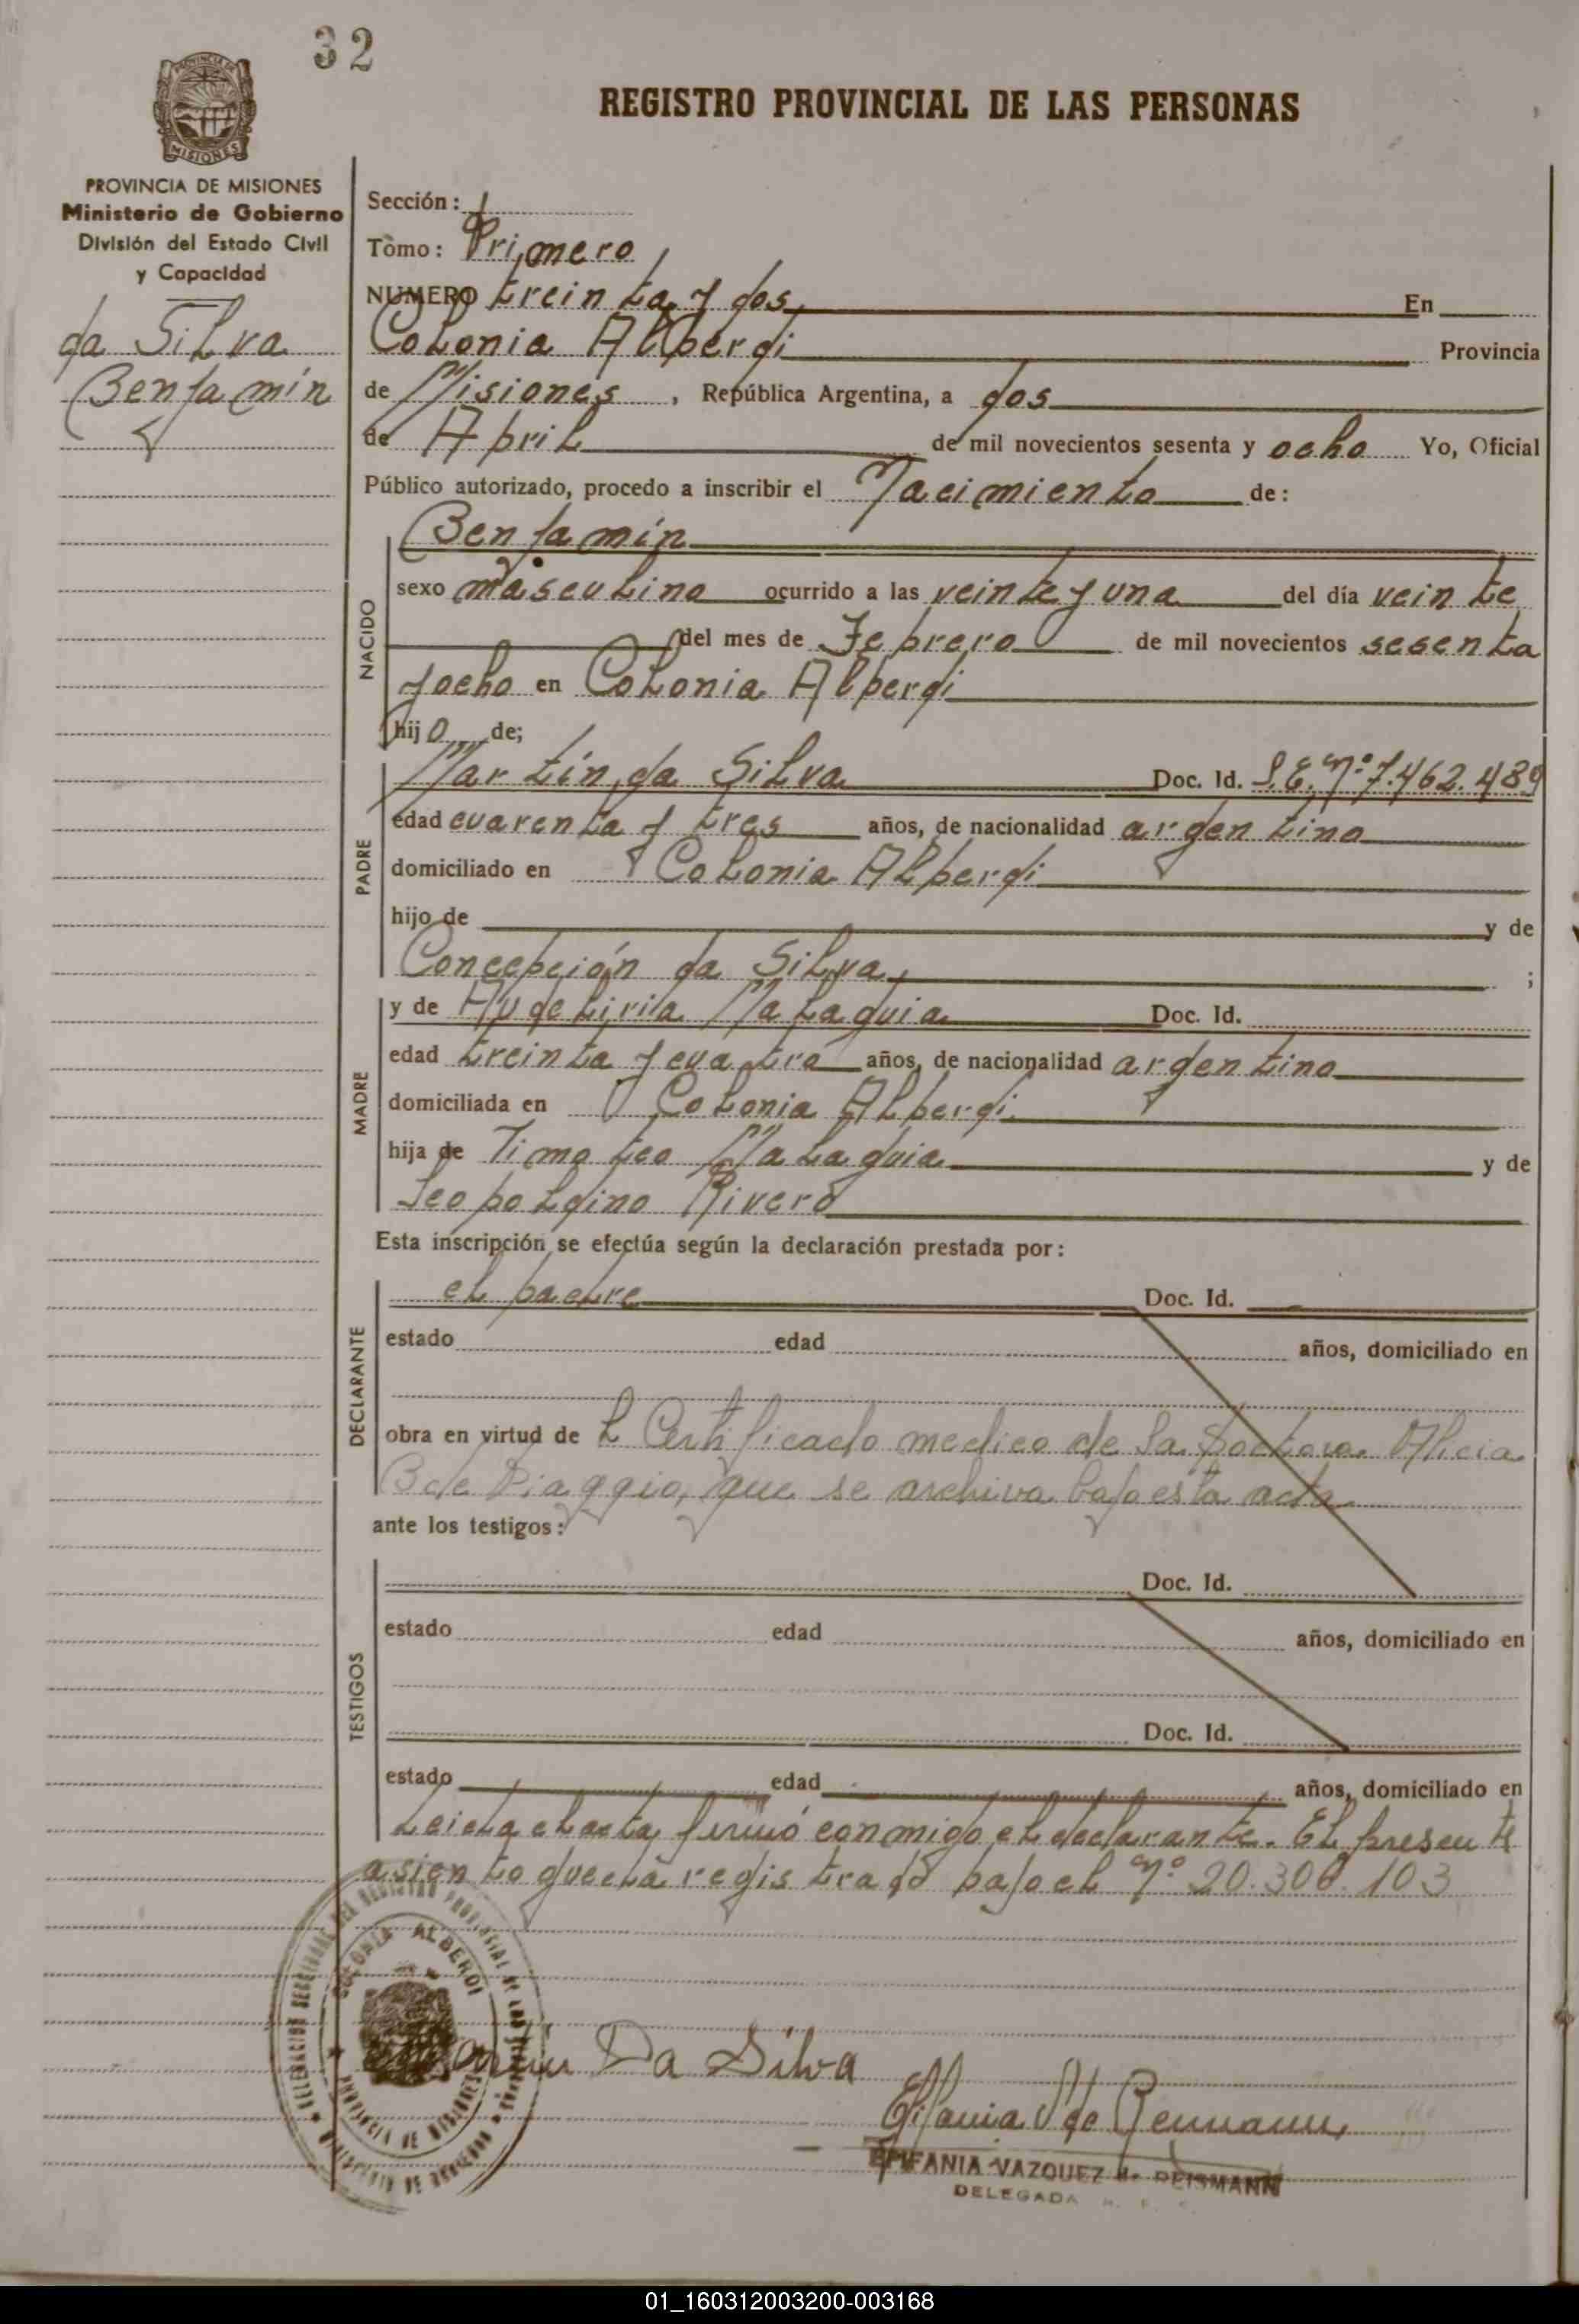 32
REGISTRO PROVINCIAL DE LAS PERSONAS
PROVINCIA DE MISIONES
Ministerio de Gobierno
División del Estado Civil
y Capacidad
da Silva
Benjamín
Sección: 1
Tomo: Primero
NUMERO treinta y dos En
Colonia Alberdi Provincia
de Misiones, República Argentina, a dos
de Abril de mil novecientos sesenta y ocho Yo, Oficial
Público autorizado, procedo a inscribir el Nacimiento de:
NACIDO
Benjamín
sexo masculino ocurrido a las veinte y una del día veinte
del mes de Febrero de mil novecientos sesenta
y ocho en Colonia Alberdi
hijo de;
PADRE
Martín da Silva Doc. Id. L.E. Nº 7.462.489
edad cuarenta y tres años, de nacionalidad argentino
domiciliado en Colonia Alberdi
hijo de y de
Concepción da Silva ;
MADRE
y de Doc. Id.
edad treinta y cuatro años, de nacionalidad argentina
domiciliada en Colonia Alberdi
hija de Timoteo y de
Leopoldino Rivero
Esta inscripción se efectúa según la declaración prestada por:
DECLARANTE
el padre Doc. Id.
estado edad años, domiciliado en
obra en virtud de l Certificado medico de la Doctora Alicia
B de Biaggio, que se archiva bajo esta acta
ante los testigos:
TESTIGOS
Doc. Id.
estado edad años, domiciliado en
Doc. Id.
estado edad años, domiciliado en
Leida el acta firmó conmigo el declarante. El presente
asiento queda registrado bajo el Nº 20.306.103
COLONIA ALBERDI
PROVINCIA DE MISIONES
Da Silva
EPIFANIA VAZQUEZ de REISMANN
DELEGADA
01_160312003200-003168